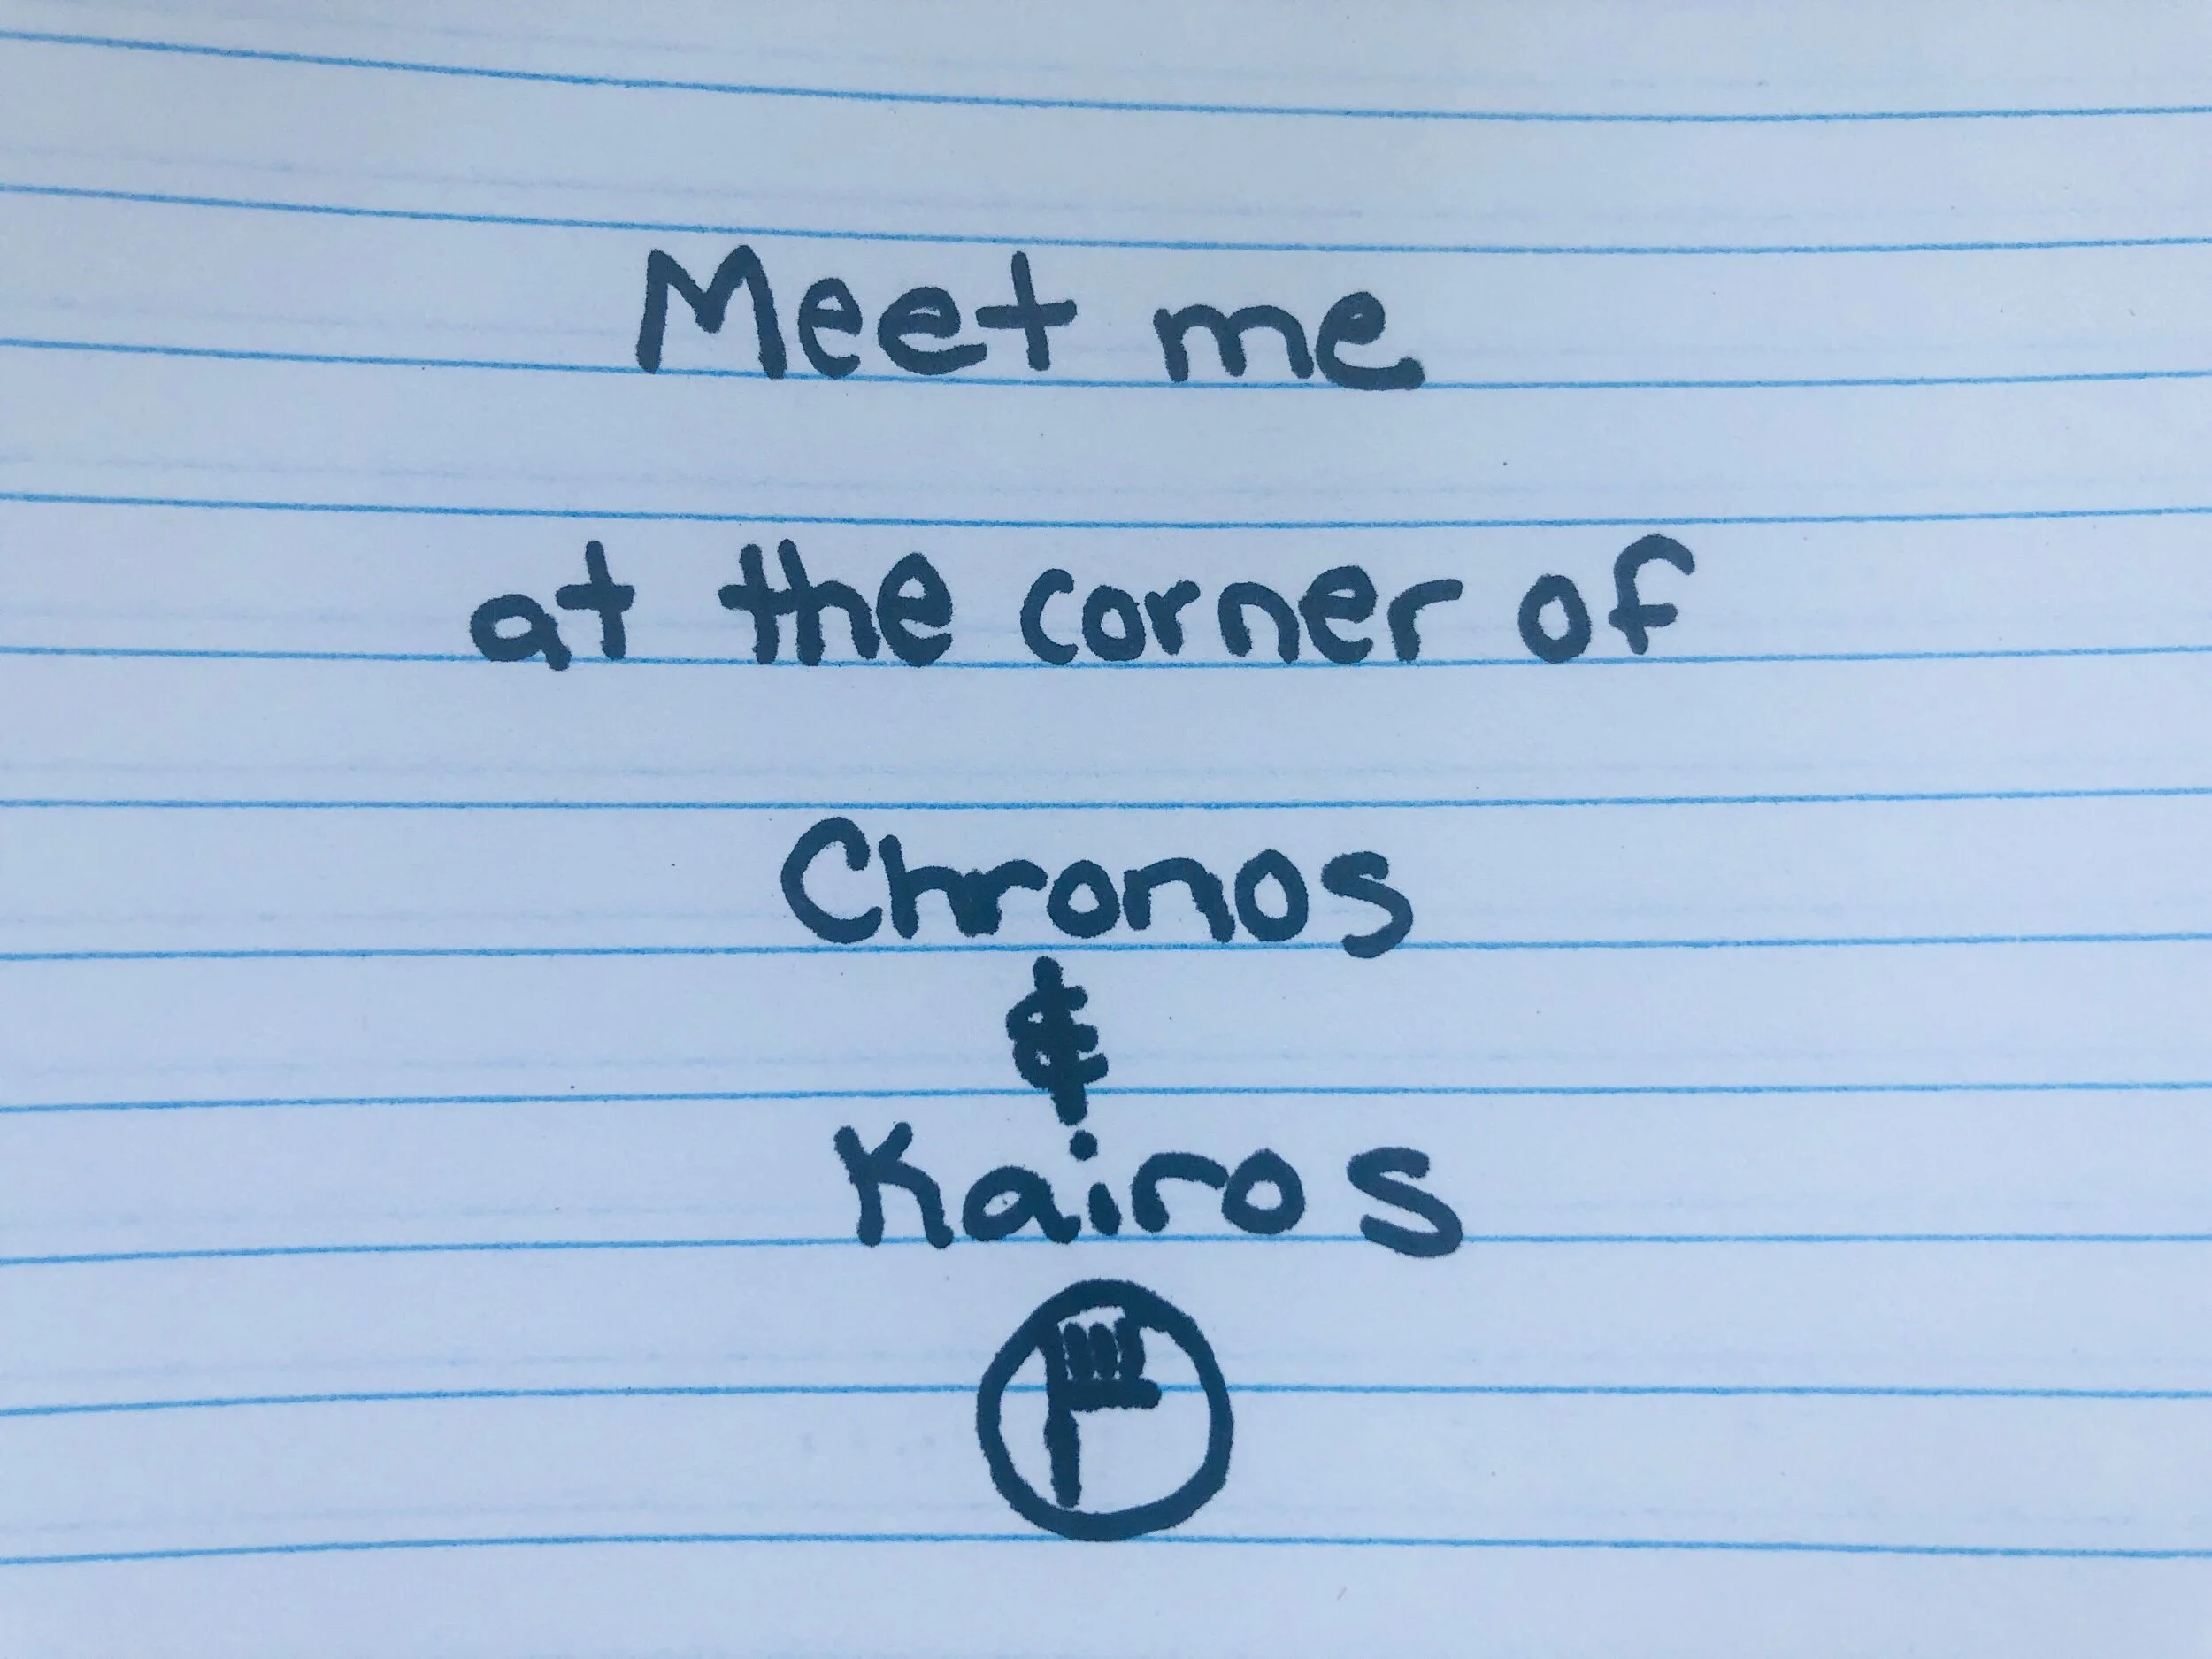 Meet me
at the corner of
Chronos
&
Kairos